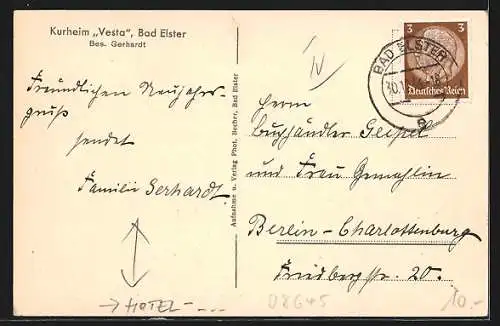 Kurheim „Vesta", Bad Elster
Bes. Gerhardt
Freundlichen Neujahrs-
gruß
sendet
Familie Gerhardt.
→ HOTEL - . . .
Aufnahme u. Verlag Phot. Becher, Bad Elster
IV
3 3
Deutsches Reich
BAD ELSTER
30.1
e
Herrn
Buchhändler Geipel
und Frau Gemahlin
Berlin-Charlottenburg
Friedbergstr. 20.
08645
10.-